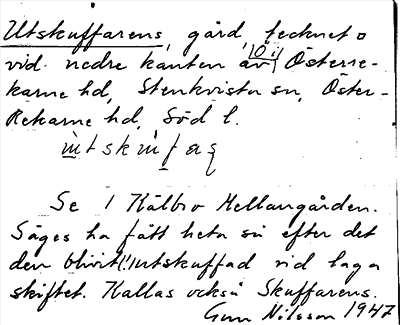 Utskuffarens, gård, tecknet o
vid nedre kanten av Ö i Österre-
karne hd, Stenkvista sn, Öster-
Rekarne hd, Söd l.
Se 1 Kälbro Mellangården.
Säges ha fått heta så efter det
den blivit (!) utskuffad vid laga
skiftet. Kallas också Skuffarens.
Gun Nilsson 1947